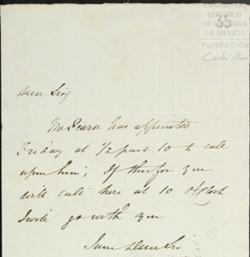 CENTRO DE
ESTUDIOS
DE HISTORIA
DE MEXICO
FUNDACIÓN
Carlos Slim
Dear Sir
has appointed
Friday at 1/2 past 10 to call
upon him; If therefor you
will call here at 10 oClock
I will go with you
Dear Sir